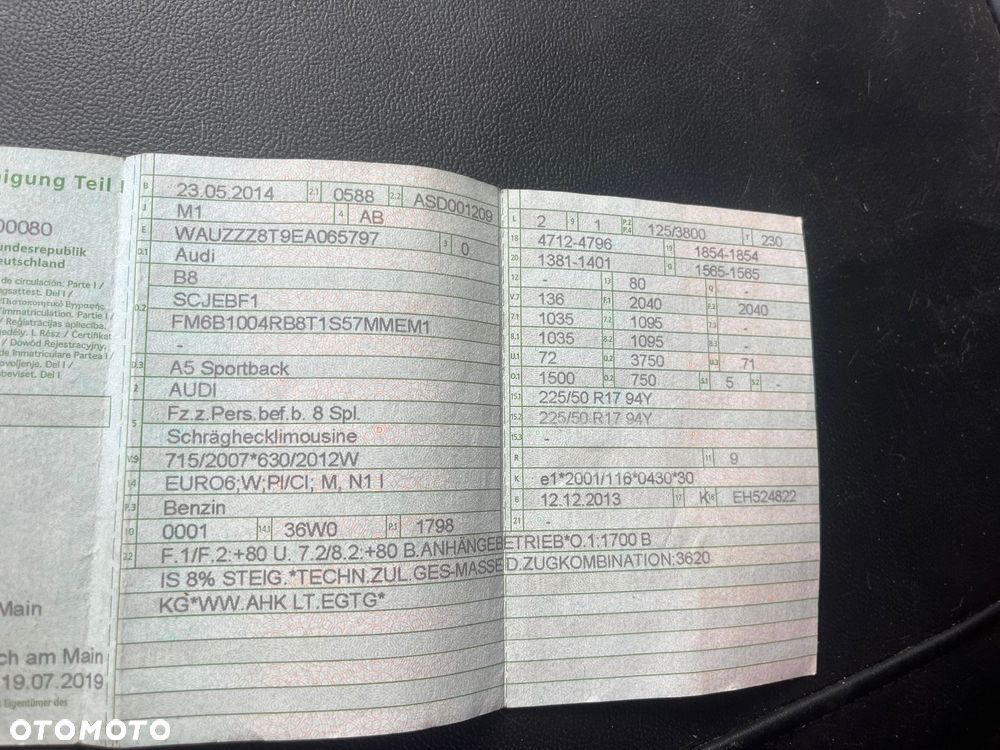 igung Teil I
00080
undesrepublik
eutschland
de circulación. Parte I /
ngsattest. Del I /
'immatriculation. Partie I /
/ Reģistrācijas apliecība.
gedély. I. Rész / Certifikat
/ Dowód Rejestracyjny.
de Inmatriculare Partea I
ovoljenje. Del I /
beviset. Del I
Main
ch am Main
19.07.2019
s Eigentümer des
B 23.05.2014 2.1 0588 2.2 ASD001209
J M1 4 AB
E WAUZZZ8T9EA065797 3 0
D.1 Audi
B8
D.2 SCJEBF1
FM6B1004RB8T1S57MMEM1
-
D.3 A5 Sportback
2 AUDI
5 Fz.z.Pers.bef.b. 8 Spl.
Schräghecklimousine
V.9 715/2007*630/2012W
14 EURO6;W;PI/CI; M, N1 I
P.3 Benzin
10 0001 14.1 36W0 P.1 1798
22 F.1/F.2:+80 U. 7.2/8.2:+80 B.ANHÄNGEBETRIEB*O.1:1700 B
IS 8% STEIG.*TECHN.ZUL.GES-MASSE D.ZUGKOMBINATION:3620
KG*WW.AHK LT.EGTG*
L 2 9 1 P.2 P.4 125/3800 T 230
18 4712-4796 19 1854-1854
20 1381-1401 G 1565-1565
12 - 13 80 Q -
V.7 136 F.1 2040 F.2 2040
7.1 1035 7.2 1095 7.3 -
8.1 1035 8.2 1095 8.3 -
U.1 72 U.2 3750 U.3 71
O.1 1500 O.2 750 S.1 5 S.2 -
15.1 225/50 R17 94Y
15.2 225/50 R17 94Y
15.3 -
R 11 9
K e1*2001/116*0430*30
6 12.12.2013 17 K 16 EH524822
21 -
OTOMOTO